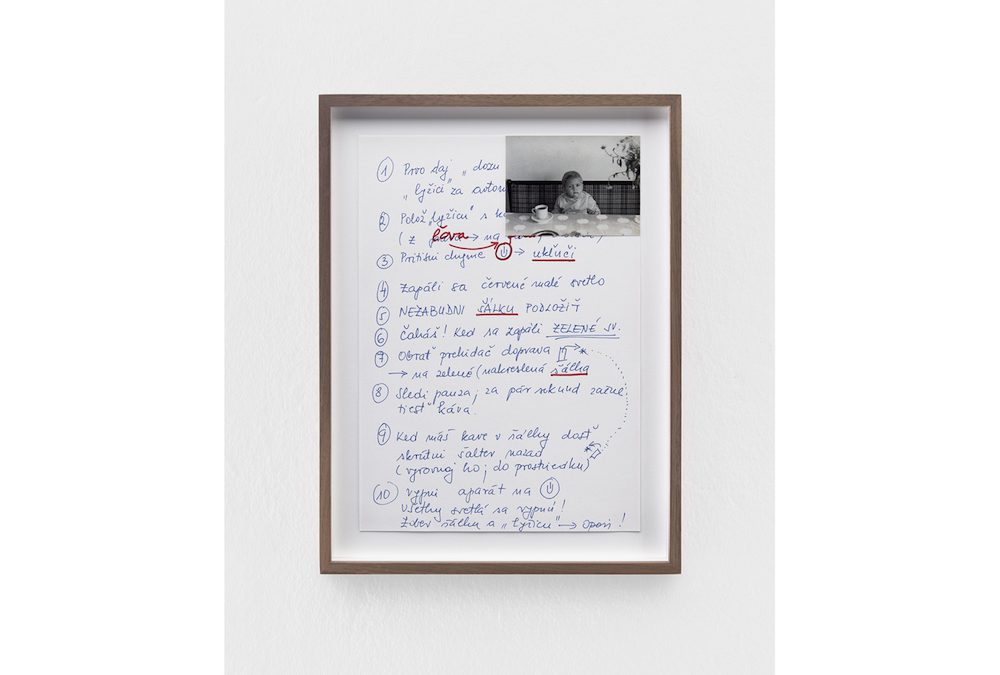 ① Prvo daj „dozu
„lyžici" za
② Polož „lyžicu" s
(z ľava → na
③ Pritisni dugme → ukľuči
④ Zapáli sa červené malé svetlo
⑤ NEZABUDNI ŠÁLKU PODLOŽIŤ
⑥ Čakáš! Ked sa zapáli ZELENÉ SV.
⑦ Obrať prekidač doprava
→ na zelené (nakreslená šálka
⑧ Sledi pauza; za pár sekund začne
tiesť káva.
⑨ Ked máš kave v šálky dosť
skrútni šalter nazad
(vyrovnaj ho; do prostriedku)
⑩ vypni aparát na
Všetky svetlá sa vypnú!
šálku a „lyžicu" → Operi!